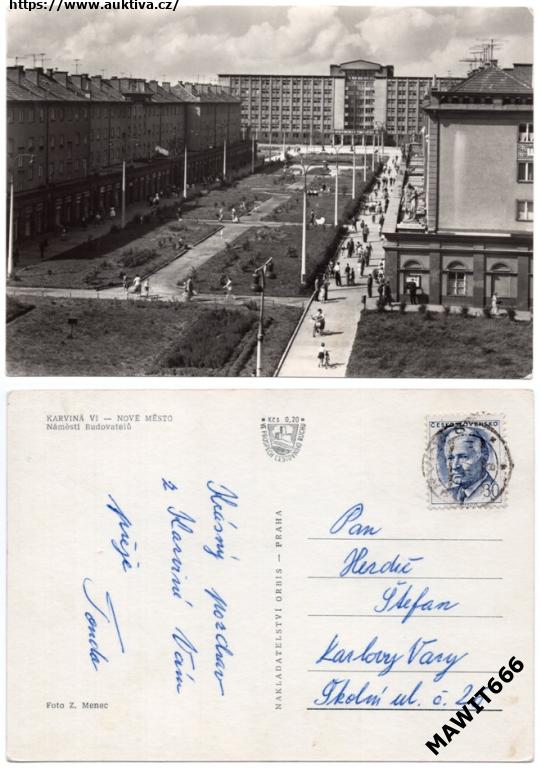 https://www.auktiva.cz/
KARVINÁ VI — NOVÉ MĚSTO
Náměstí Budovatelů
Kčs 0,20
VE PROSPĚCH CESTOVNÍHO RUCHU
ČESKOSLOVENSKO
30
Krásný pozdrav
z Karviné Vám
přeje
Tonda
NAKLADATELSTVÍ ORBIS — PRAHA
Pan
Herdič
Štefan
Karlovy Vary
Školní ul. č.
Foto Z. Menec
MAWIT666